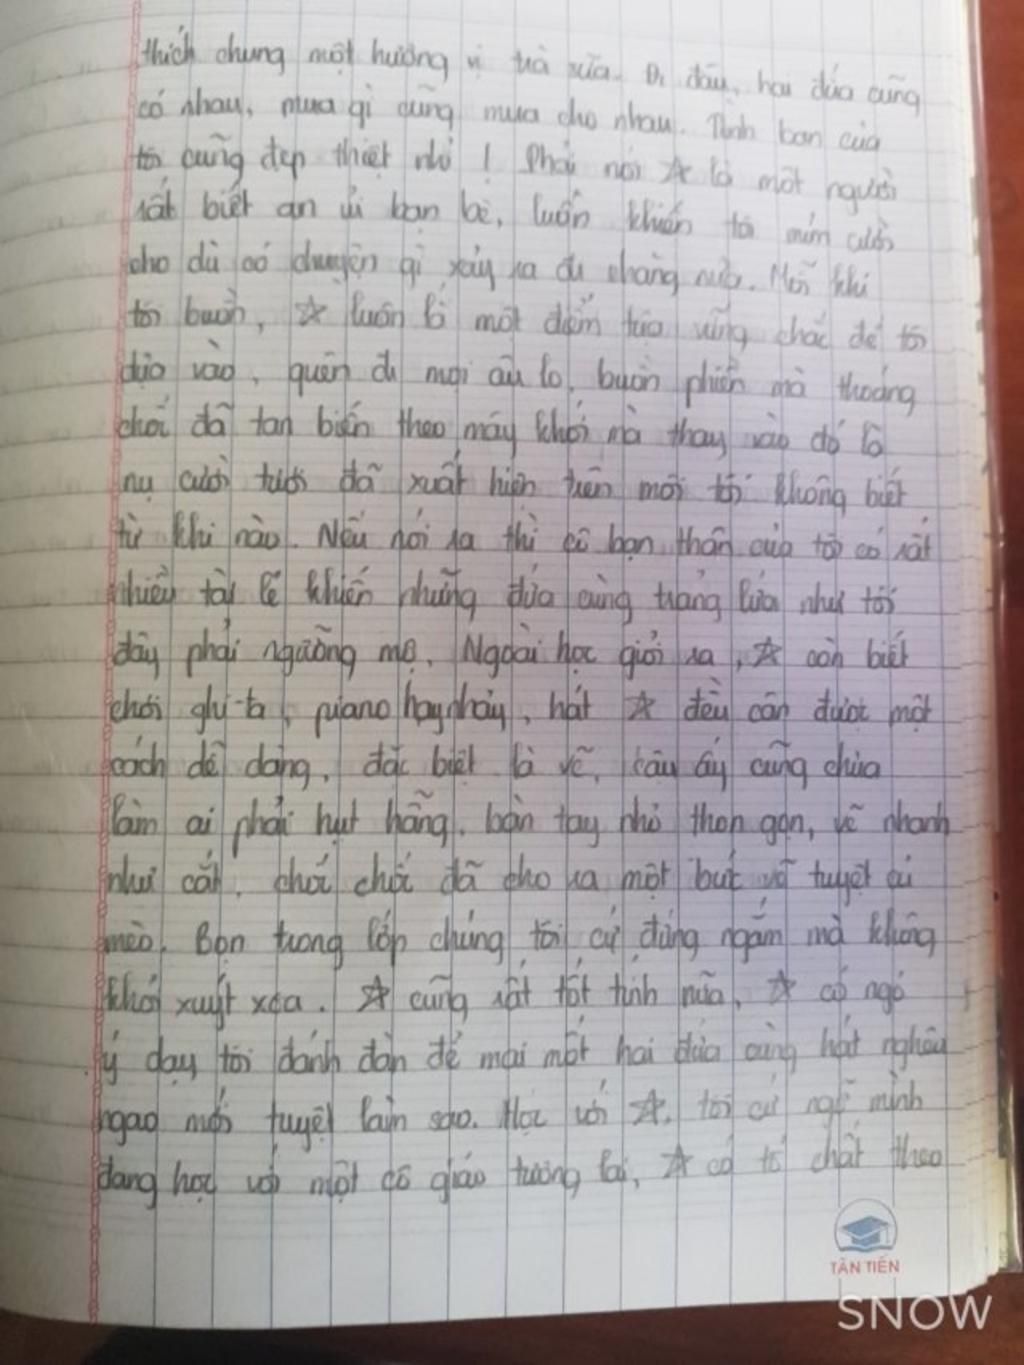 thích chung một hương vị trà sữa. Đi đâu, hai đứa cũng
có nhau, mua gì cũng mua cho nhau. Tình bạn của
tôi cũng đẹp thiệt nhỉ ! Phải nói ☆ là một người
rất biết an ủi bạn bè, luôn khiến tôi mỉm cười
cho dù có chuyện gì xảy ra đi chăng nữa. Mỗi khi
tôi buồn, ☆ luôn là một điểm tựa vững chắc để tôi
dựa vào, quên đi mọi âu lo, buồn phiền mà thoáng
chốc đã tan biến theo mây khói mà thay vào đó là
nụ cười tươi đã xuất hiện trên môi tôi không biết
từ khi nào. Nếu nói ra thì cô bạn thân của tôi có rất
nhiều tài lẻ khiến những đứa cùng trang lứa như tôi
đây phải ngưỡng mộ. Ngoài học giỏi ra, ☆ còn biết
chơi ghi-ta, piano hay nhảy, hát ☆ đều cân được một
cách dễ dàng, đặc biệt là vẽ, cậu ấy cũng chưa
làm ai phải hụt hẫng. bàn tay nhỏ thon gọn, vẽ nhanh
như cắt, chốc chốc đã cho ra một bức vẽ tuyệt cú
mèo. Bọn trong lớp chúng tôi cứ đứng ngắm mà không
khỏi xuýt xoa. ☆ cũng rất tốt tính nữa, ☆ có ngỏ
ý dạy tôi đánh đàn để mai mốt hai đứa cùng hát nghêu
ngao mới tuyệt làm sao. Học với ☆, tôi cứ ngỡ mình
đang học với một cô giáo tương lai, ☆ có tố chất theo
TÂN TIẾN
SNOW